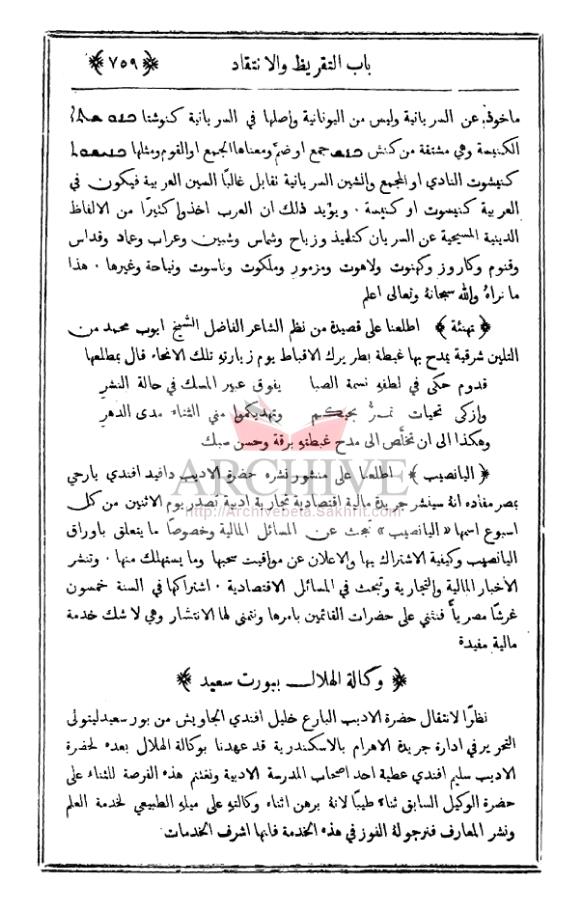 باب التقريظ والانتقاد ﴿٧٥٩﴾
ماخوذ عن السريانية وليس من اليونانية واصلها في السريانية كنوشتا
الكنيسة وهي مشتقة من كنش جمع او ضمّ ومعناها الجمع او القوم ومثلها
كنيشوت النادي او المجمع والشين السريانية تقابل غالبًا السين العربية فيكون في
العربية كنيسوت او كنيسة ٠ ويؤيد ذلك ان العرب اخذوا كثيرًا من الالفاظ
الدينية المسيحية عن السريان كتلميذ وزياح وشماس وشبين وعراب وعماد وقداس
وقنوم وكاروز وكهنوت ولاهوت ومزمور وملكوت وناسوت ونياحة وغيرها ٠ هذا
ما نراهُ والله سبحانهُ وتعالى اعلم
﴿ تهنئة ﴾ اطلعنا على قصيدة من نظم الشاعر الفاضل الشيخ ايوب محمد من
التلين شرقية يمدح بها غبطة بطريرك الاقباط يوم زيارتهِ تلك الانحاء قال بمطلعها
قدوم حكى في لطفهِ نسمة الصبا يفوق عبير المسك في حالة النشرِ
وازكى تحيات تمرُّ بحيكم وتهديكموا مني الثناء مدى الدهرِ
وهكذا الى ان تخلَّص الى مدح غبطتهِ برقة وحسن سبك
﴿ اليانصيب ﴾ اطلعنا على منشور نشره حضرة الاديب دافيد افندي يارحي
بمصر مفاده انهُ سينشر جريدة مالية اقتصادية تجارية ادبية تصدر يوم الاثنين من كل
اسبوع اسمها « اليانصيب » تبحث عن المسائل المالية وخصوصًا ما يتعلق باوراق
اليانصيب وكيفية الاشتراك بها والاعلان عن مواقيت سحبها وما يستهلك منها ٠ وتنشر
الأخبار المالية والتجارية وتبحث في المسائل الاقتصادية ٠ اشتراكها في السنة خمسون
غرشًا مصريًّا فنثني على حضرات القائمين بامرها ونتمنى لها الانتشار وهي لا شك خدمة
مالية مفيدة
﴿ وكالة الهلال ببورت سعيد ﴾
نظرًا لانتقال حضرة الاديب البارع خليل افندي الجاويش من بور سعيد ليتولى
التحرير في ادارة جريدة الاهرام بالاسكندرية قد عهدنا بوكالة الهلال بعده لحضرة
الاديب سليم افندي عطية احد اصحاب المدرسة الادبية ونغتنم هذه الفرصة للثناء على
حضرة الوكيل السابق ثناءً طيبًا لانهُ برهن اثناء وكالتهِ على ميلهِ الطبيعي لخدمة العلم
ونشر المعارف فنرجو لهُ الفوز في هذه الخدمة فانها اشرف الخدمات
ARCHIVE
http://Archivebeta.Sakhrit.com